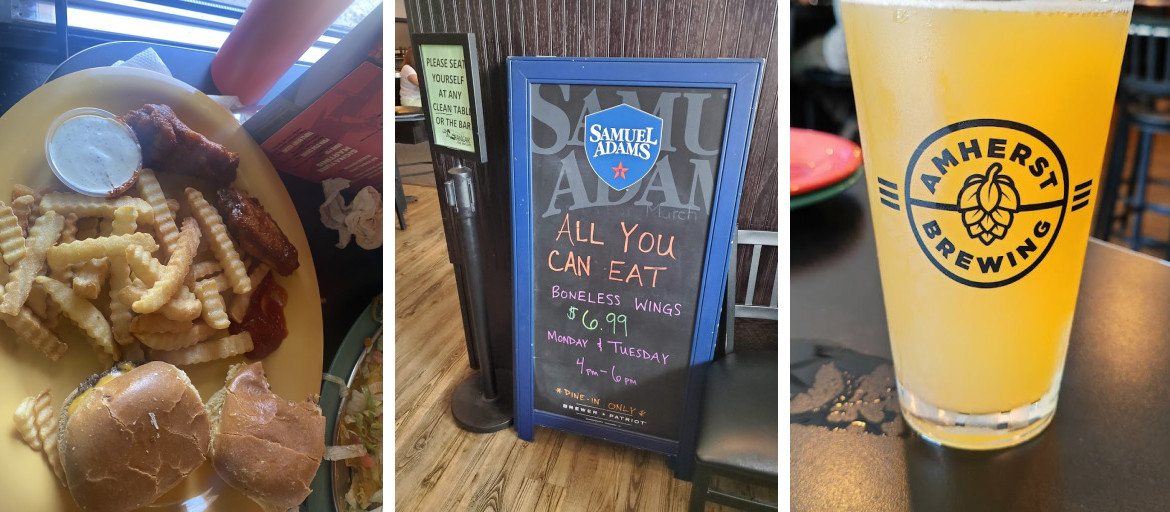 PLEASE SEAT
YOURSELF
AT ANY
CLEAN TABLE
OR THE BAR
SAMU
ADAM
SAMUEL
ADAMS
March
ALL YOU
CAN EAT
BONELESS WINGS
$6.99
MONDAY & TUESDAY
4PM-6PM
*DINE-IN ONLY*
BREWER + PATRIOT
AMHERST
BREWING